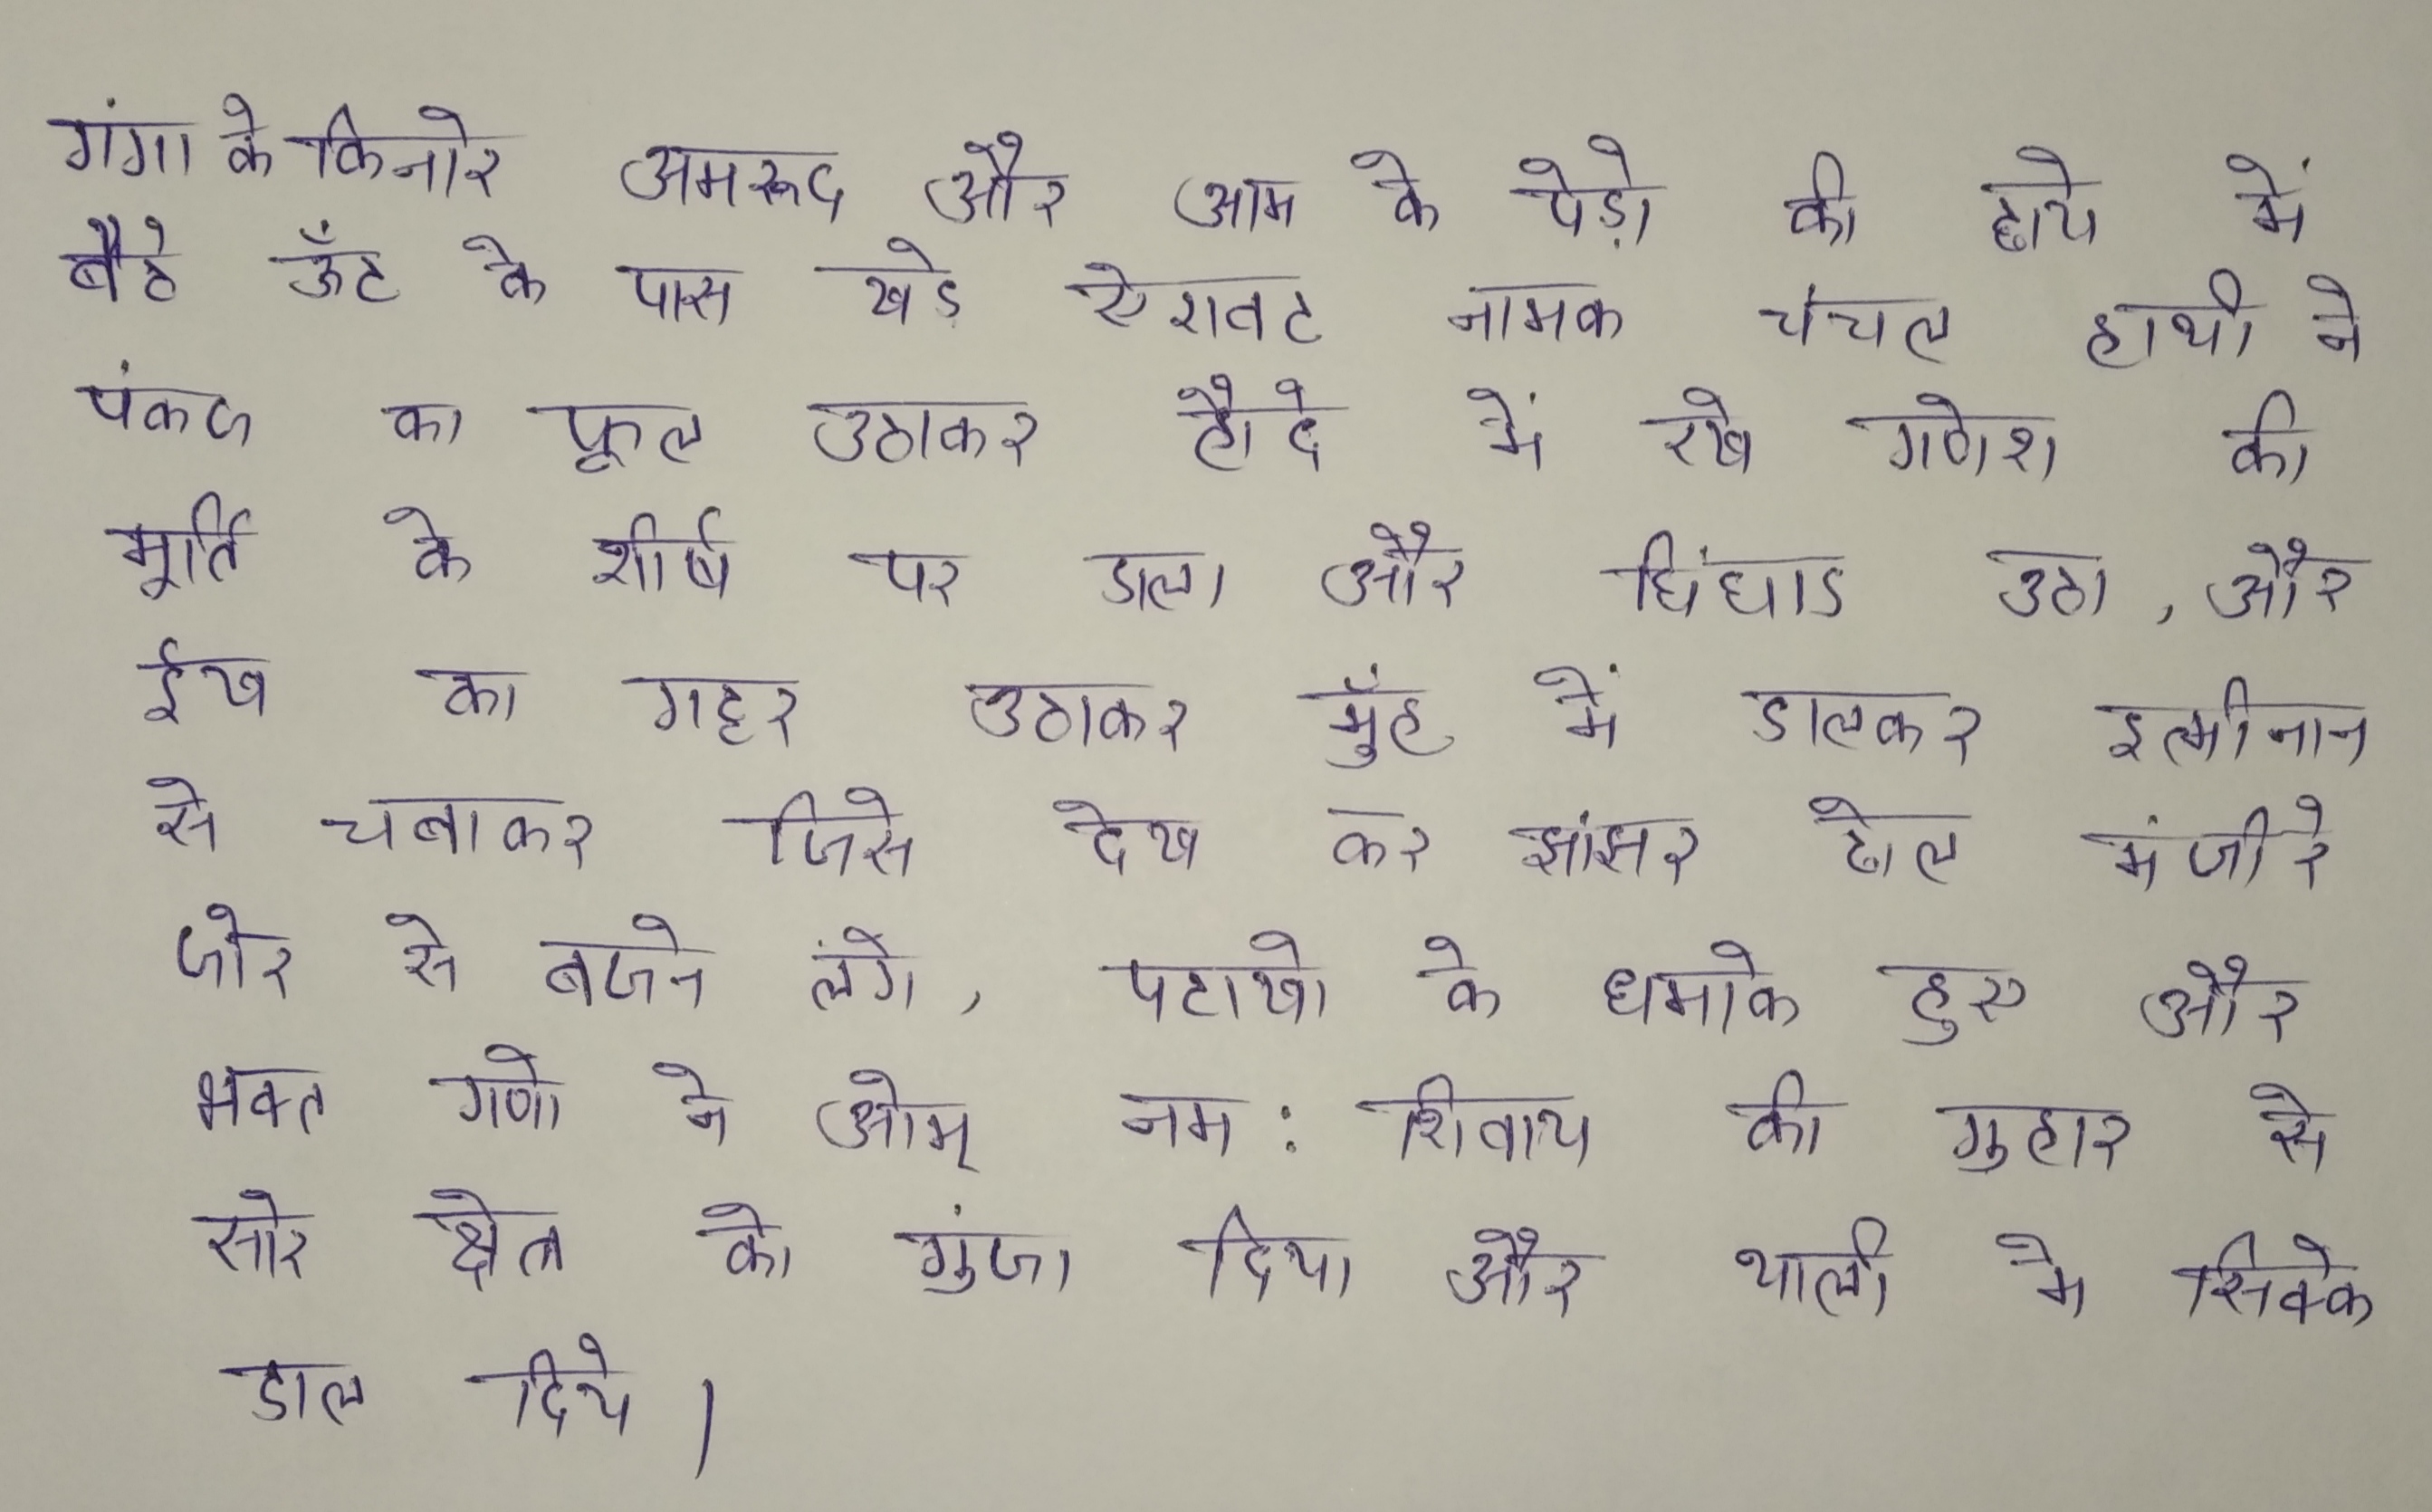 गंगा के किनारे अमरूद और आम के पेड़ो की छाये में
बैठे ऊँट के पास खडे ऐरावट नामक चंचल हाथी ने
पंकज का फूल उठाकर हौदे में रखे गणेश की
मूर्ति के शीर्ष पर डाला और घिंघाड उठा, और
ईख का गट्टर उठाकर मुँह में डालकर इत्मीनान
से चबाकर जिसे देख कर झांझर ढोल मंजीरे
जोर से बजने लगे, पटाखो के धमाके हुए और
भक्त गणो ने ओम् नम: शिवाय की गुहार से
सारे क्षेत्र को गुंजा दिया और थाली मे सिक्के
डाल दिये।